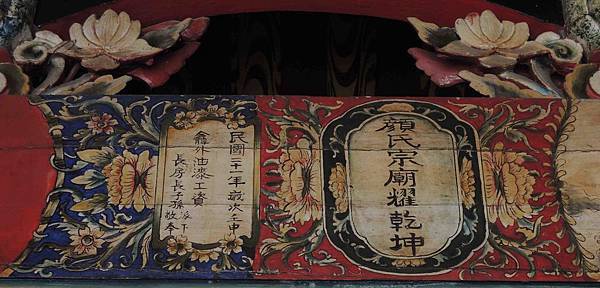 顏氏宗廟耀乾坤
民國二十一年歲次壬申
龕外油漆工資
長房長子孫派下敬奉